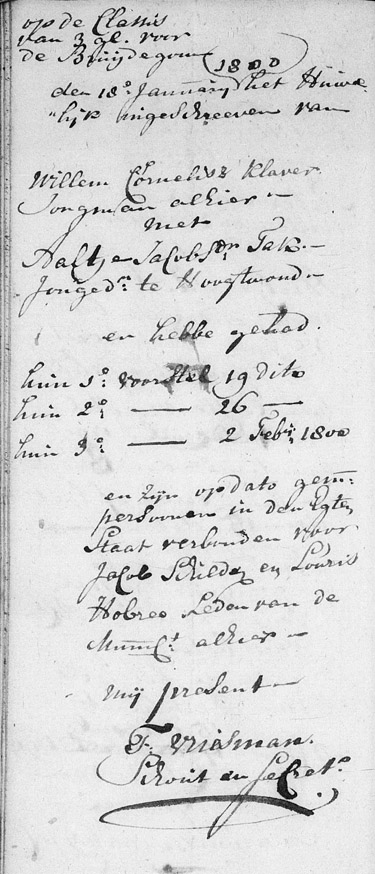 op de Classis
van 3 gl. voor
de Bruijdegom
1800
den 18e. Januarij het Huwe
"lijk ingeschreeven van
Willem Cornelisz Klaver
Jongman alhier
met
Aaltje Jacobsdr Tak
Jonged: te Hoogtwoud
en hebbe gehad
hun 1e. voorstel 19 dito
hun 2e. — 26 —
hun 3e. — 2 Feb: 1800
en zijn op dato gem:
persoonen in den Egten
Staat verbonden voor
Jacob Schilder en Louris
Hobreo Leden van de
Munict. alhier
mij present
F. Vriesman
Schout en Secrets.